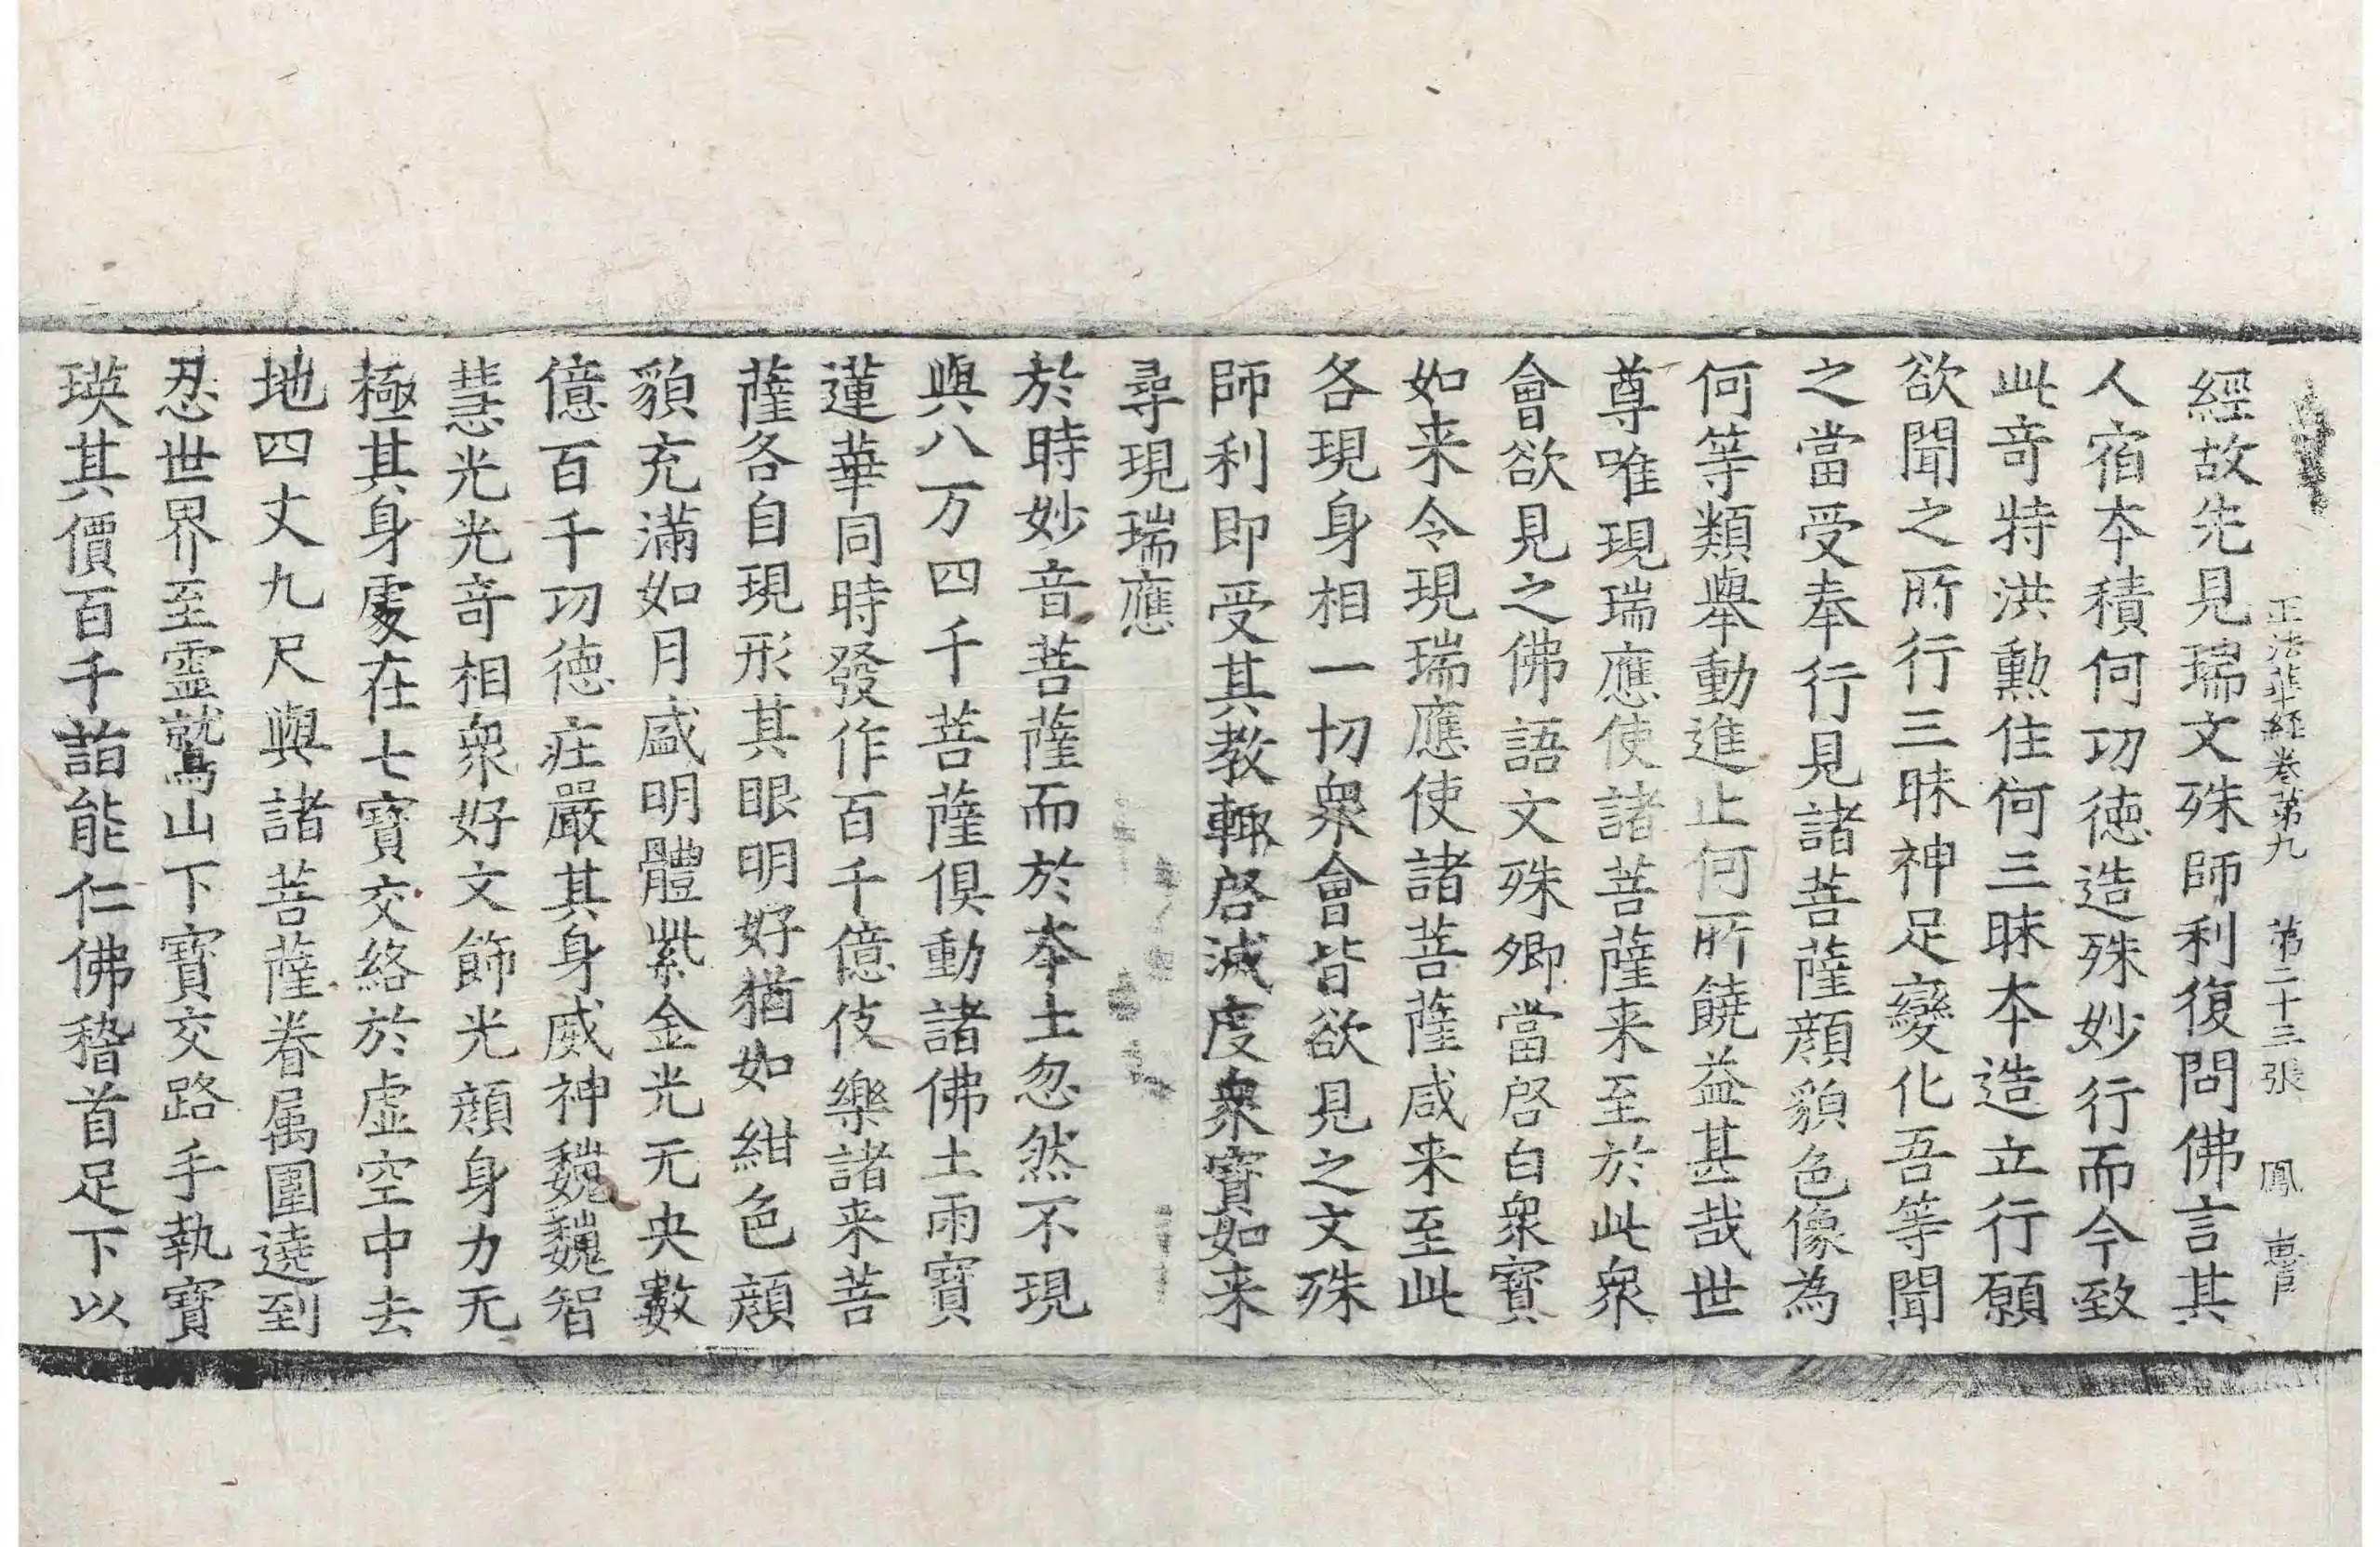 正法華經卷第九 第二十三張 鳳
經故先見瑞文殊師利復問佛言其
人宿本積何功德造殊妙行而今致
此奇特洪勲住何三昧本造立行願
欲聞之所行三昧神足變化吾等聞
之當受奉行見諸菩薩顔貌色像為
何等類舉動進止何所饒益甚哉世
尊唯現瑞應使諸菩薩来至於此衆
會欲見之佛語文殊卿當啓白衆寶
如来令現瑞應使諸菩薩咸来至此
各現身相一切衆會皆欲見之文殊
師利即受其教輙啓滅度衆寶如来
尋現瑞應
於時妙音菩薩而於本土忽然不現
與八万四千菩薩俱動諸佛土雨寶
蓮華同時發作百千億伎樂諸来菩
薩各自現形其眼明好猶如紺色顔
貌充滿如月盛明體紫金光无央數
億百千功德莊嚴其身威神巍巍智
慧光光奇相衆好文飾光顔身力无
極其身處在七寶交絡於虚空中去
地四丈九尺與諸菩薩眷属圍遶到
忍世界至靈鷲山下寶交路手執寶
瑛其價百千詣能仁佛稽首足下以